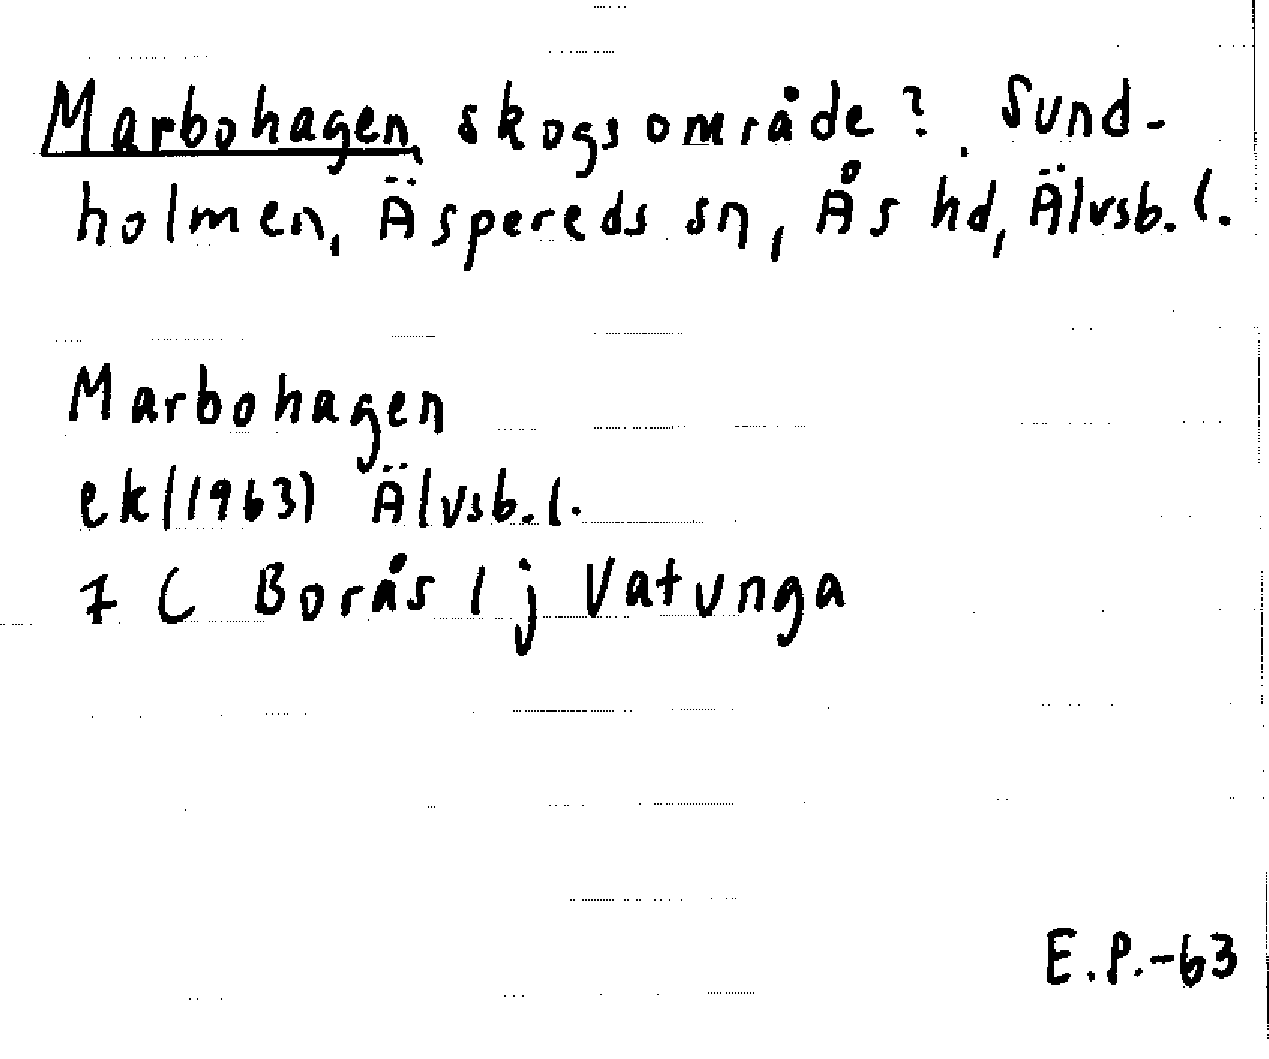 Marbohagen, skogsområde?, Sund-
holmen, Äspereds sn, Ås hd, Älvsb. l.
Marbohagen
ek (1963) Älvsb. l.
7 C Borås 1 j Vatunga
E.P.-63